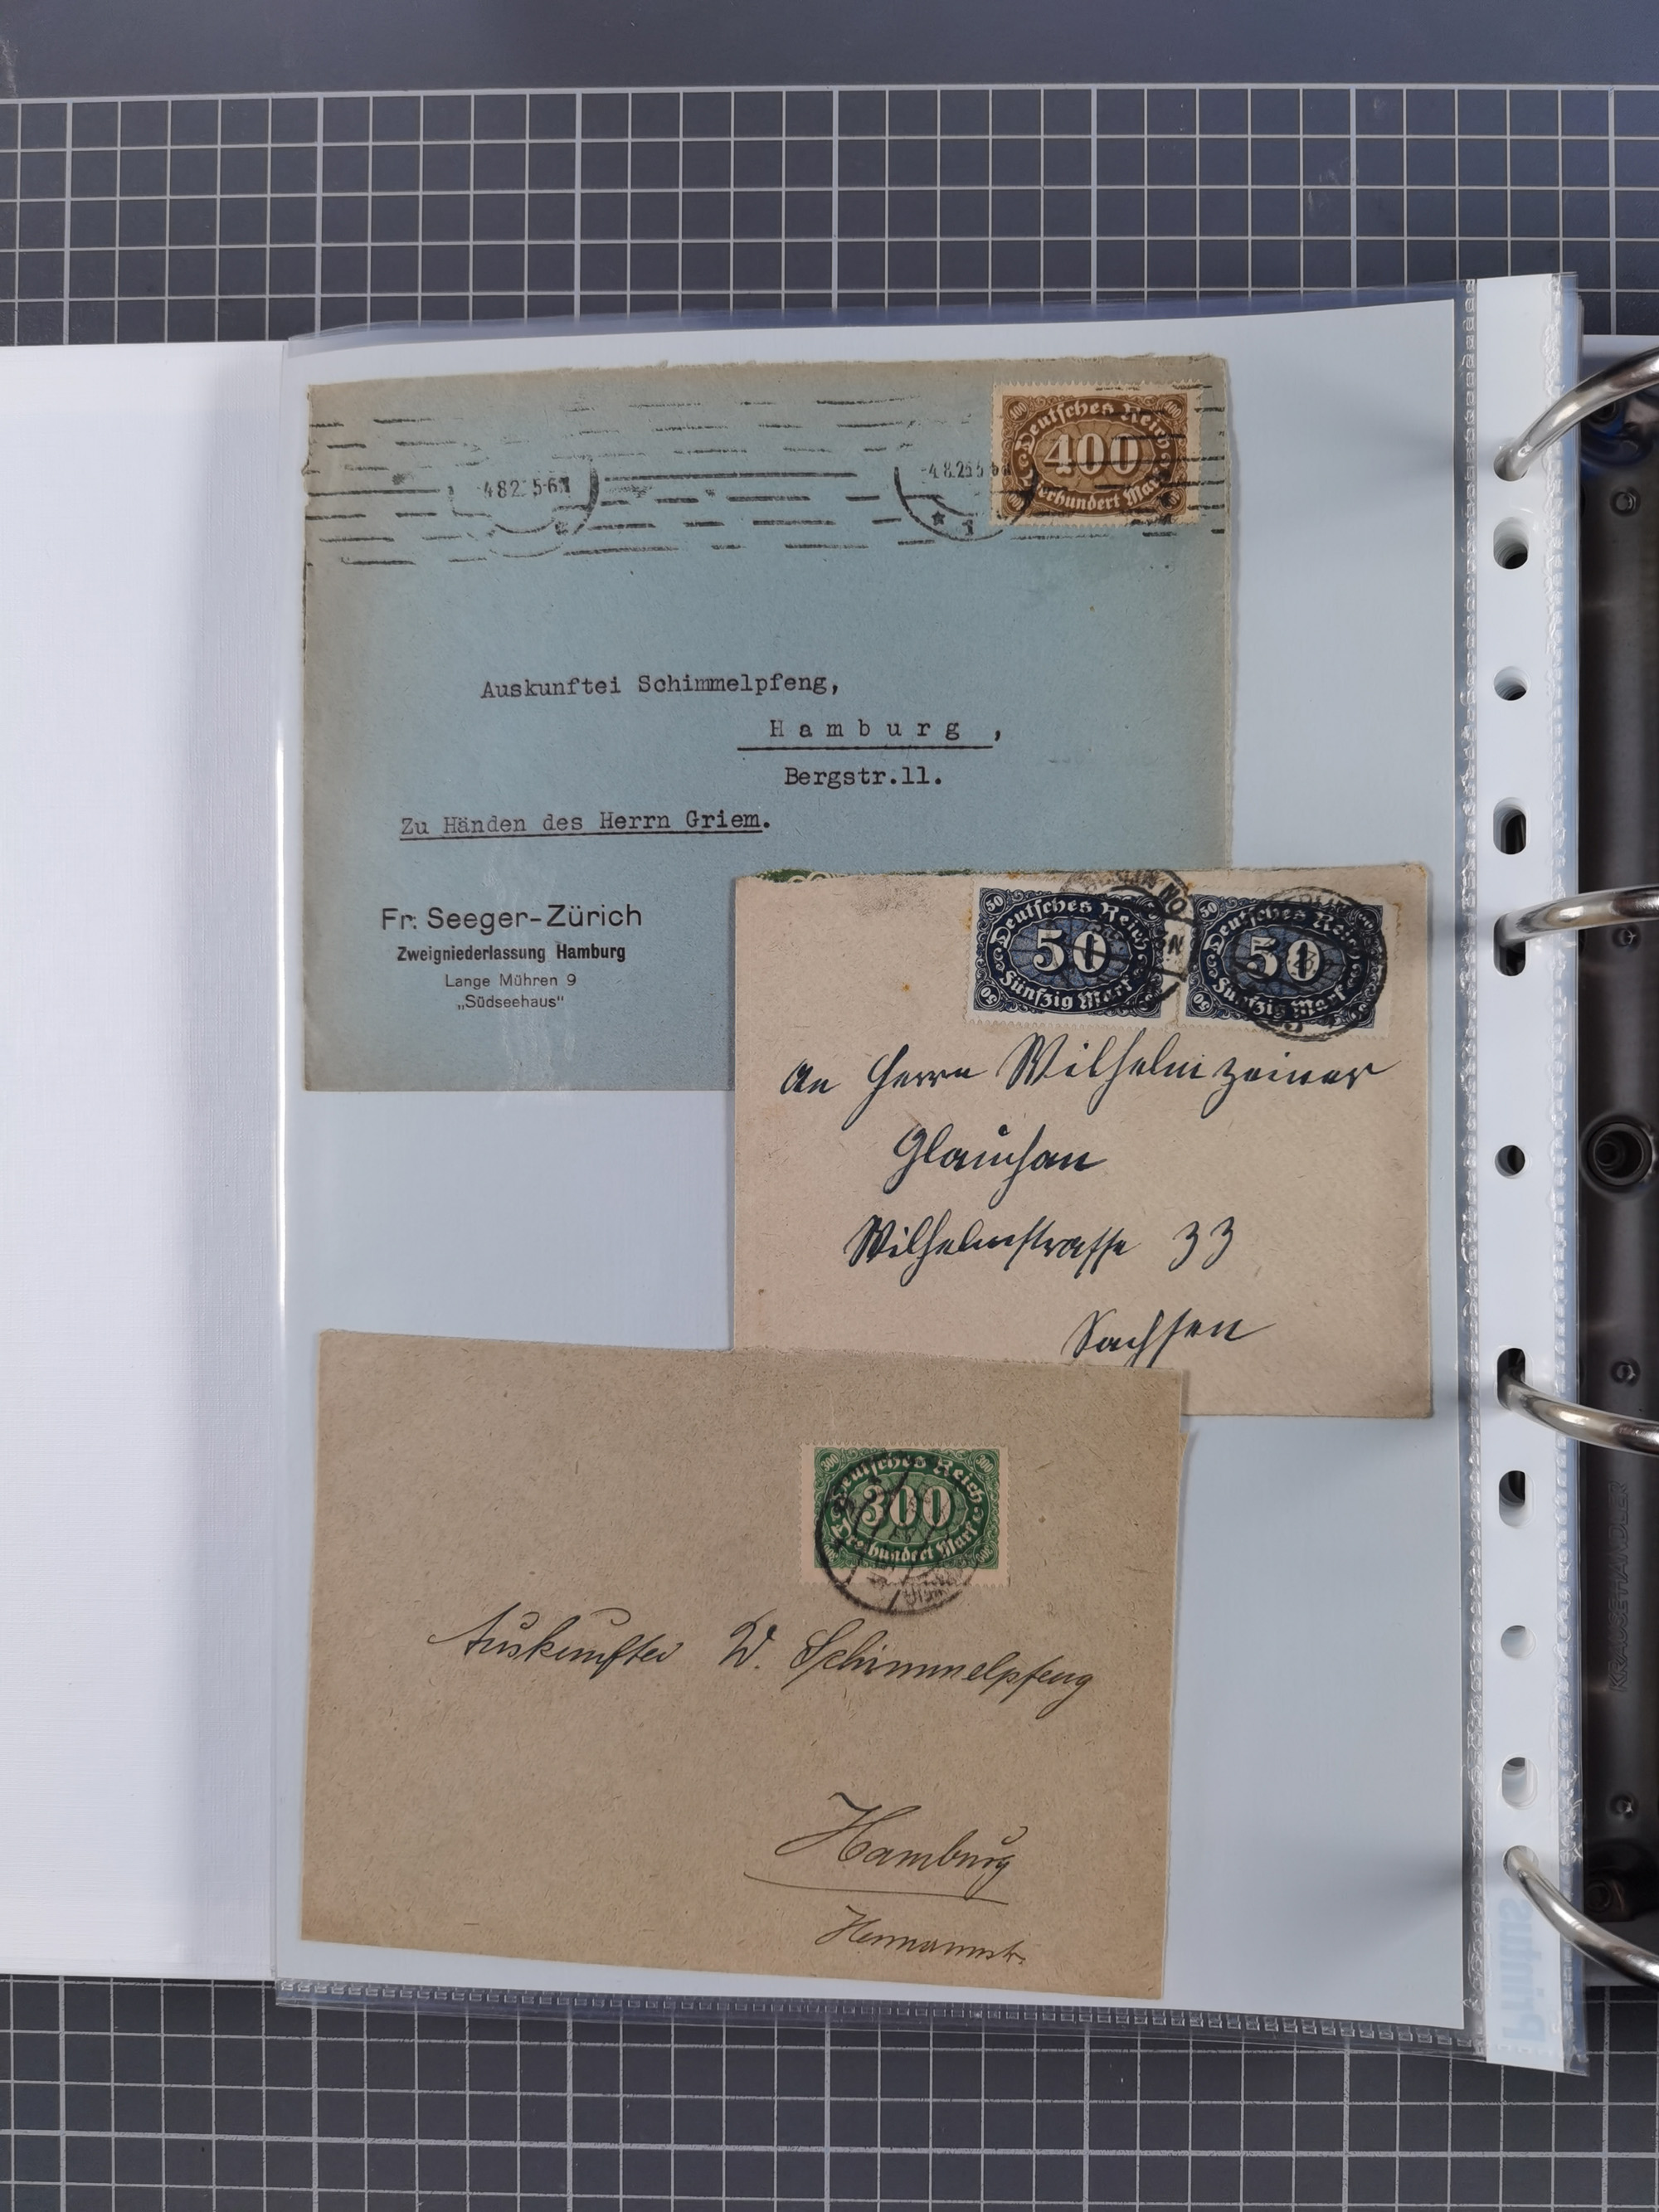 Deutsches Reich
400
400
400
Vierhundert Mark
-4.8.23 5-6 N
Auskunftei Schimmelpfeng,
Hamburg,
Bergstr.11.
Zu Händen des Herrn Griem.
Fr. Seeger-Zürich
Zweigniederlassung Hamburg
Lange Mühren 9
„Südseehaus"
50
Deutsches Reich
50
Fünfzig Mark
50
50
50
Deutsches Reich
50
Fünfzig Mark
50
An Herrn Wilhelm Zeiner
Glauchau
Wilhelmstrasse 33
Sachsen
300
300
Deutsches Reich
300
Dreihundert Mark
300
300
Auskunftei W. Schimmelpfeng
Hamburg
Hermannstr.
KRAUSE HÄNDLER
Printus